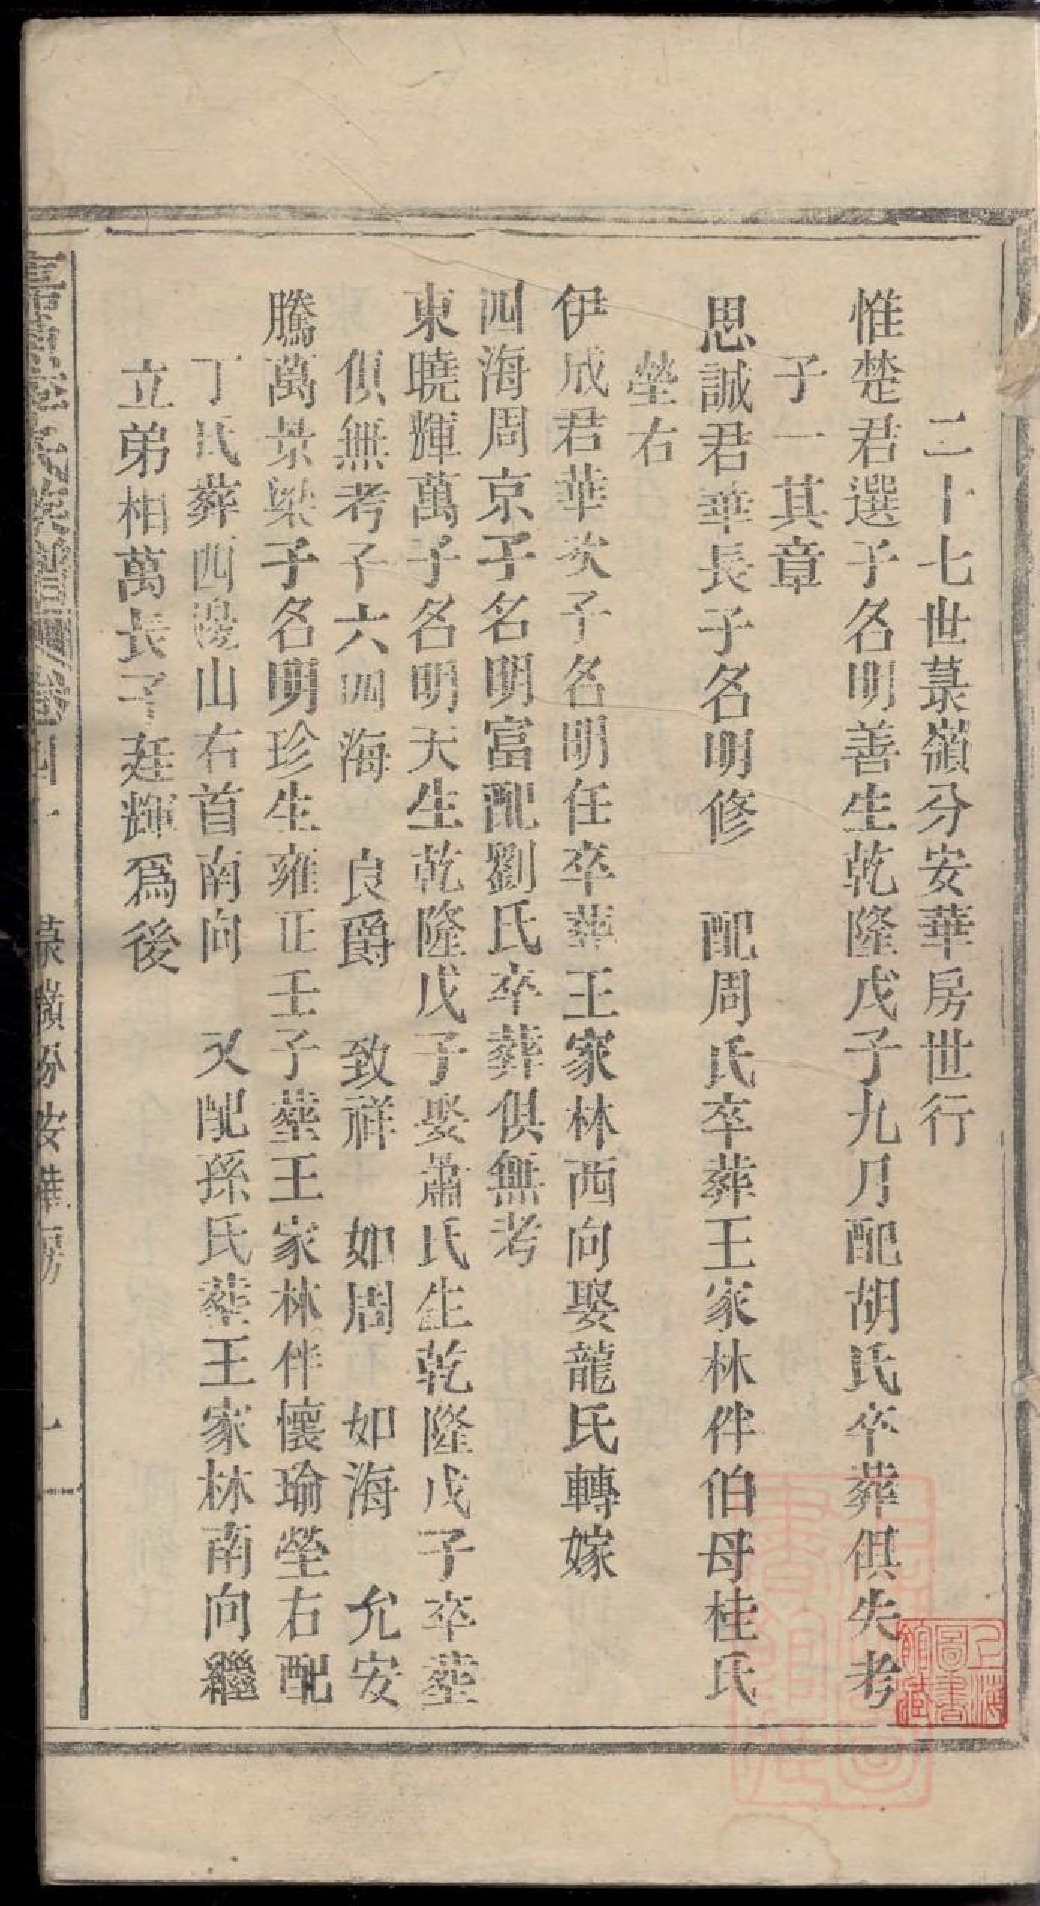 二十七世菉嶺分安華房世行
惟楚君選子名明善生乾隆戊子九月配胡氏卒葬俱失考
子一其章
思誠君華長子名明修 配周氏卒葬王家林伴伯母桂氏
塋右
伊成君華次子名明任卒葬王家林西向娶龍氏轉嫁
四海周京子名明富配劉氏卒葬俱無考
東曉輝萬子名明天生乾隆戊子娶蕭氏生乾隆戊子卒塟
俱無考子六四海 良爵 致祥 如周 如海 允安
騰萬景樂子名明珍生雍正壬子塟王家林伴懷瑜塋右配
丁氏葬西邊山右首南向 又配孫氏塟王家林南向繼
立弟相萬長子廷輝爲後
氏族譜 卷四十 菉嶺分安華房
上海圖書館藏